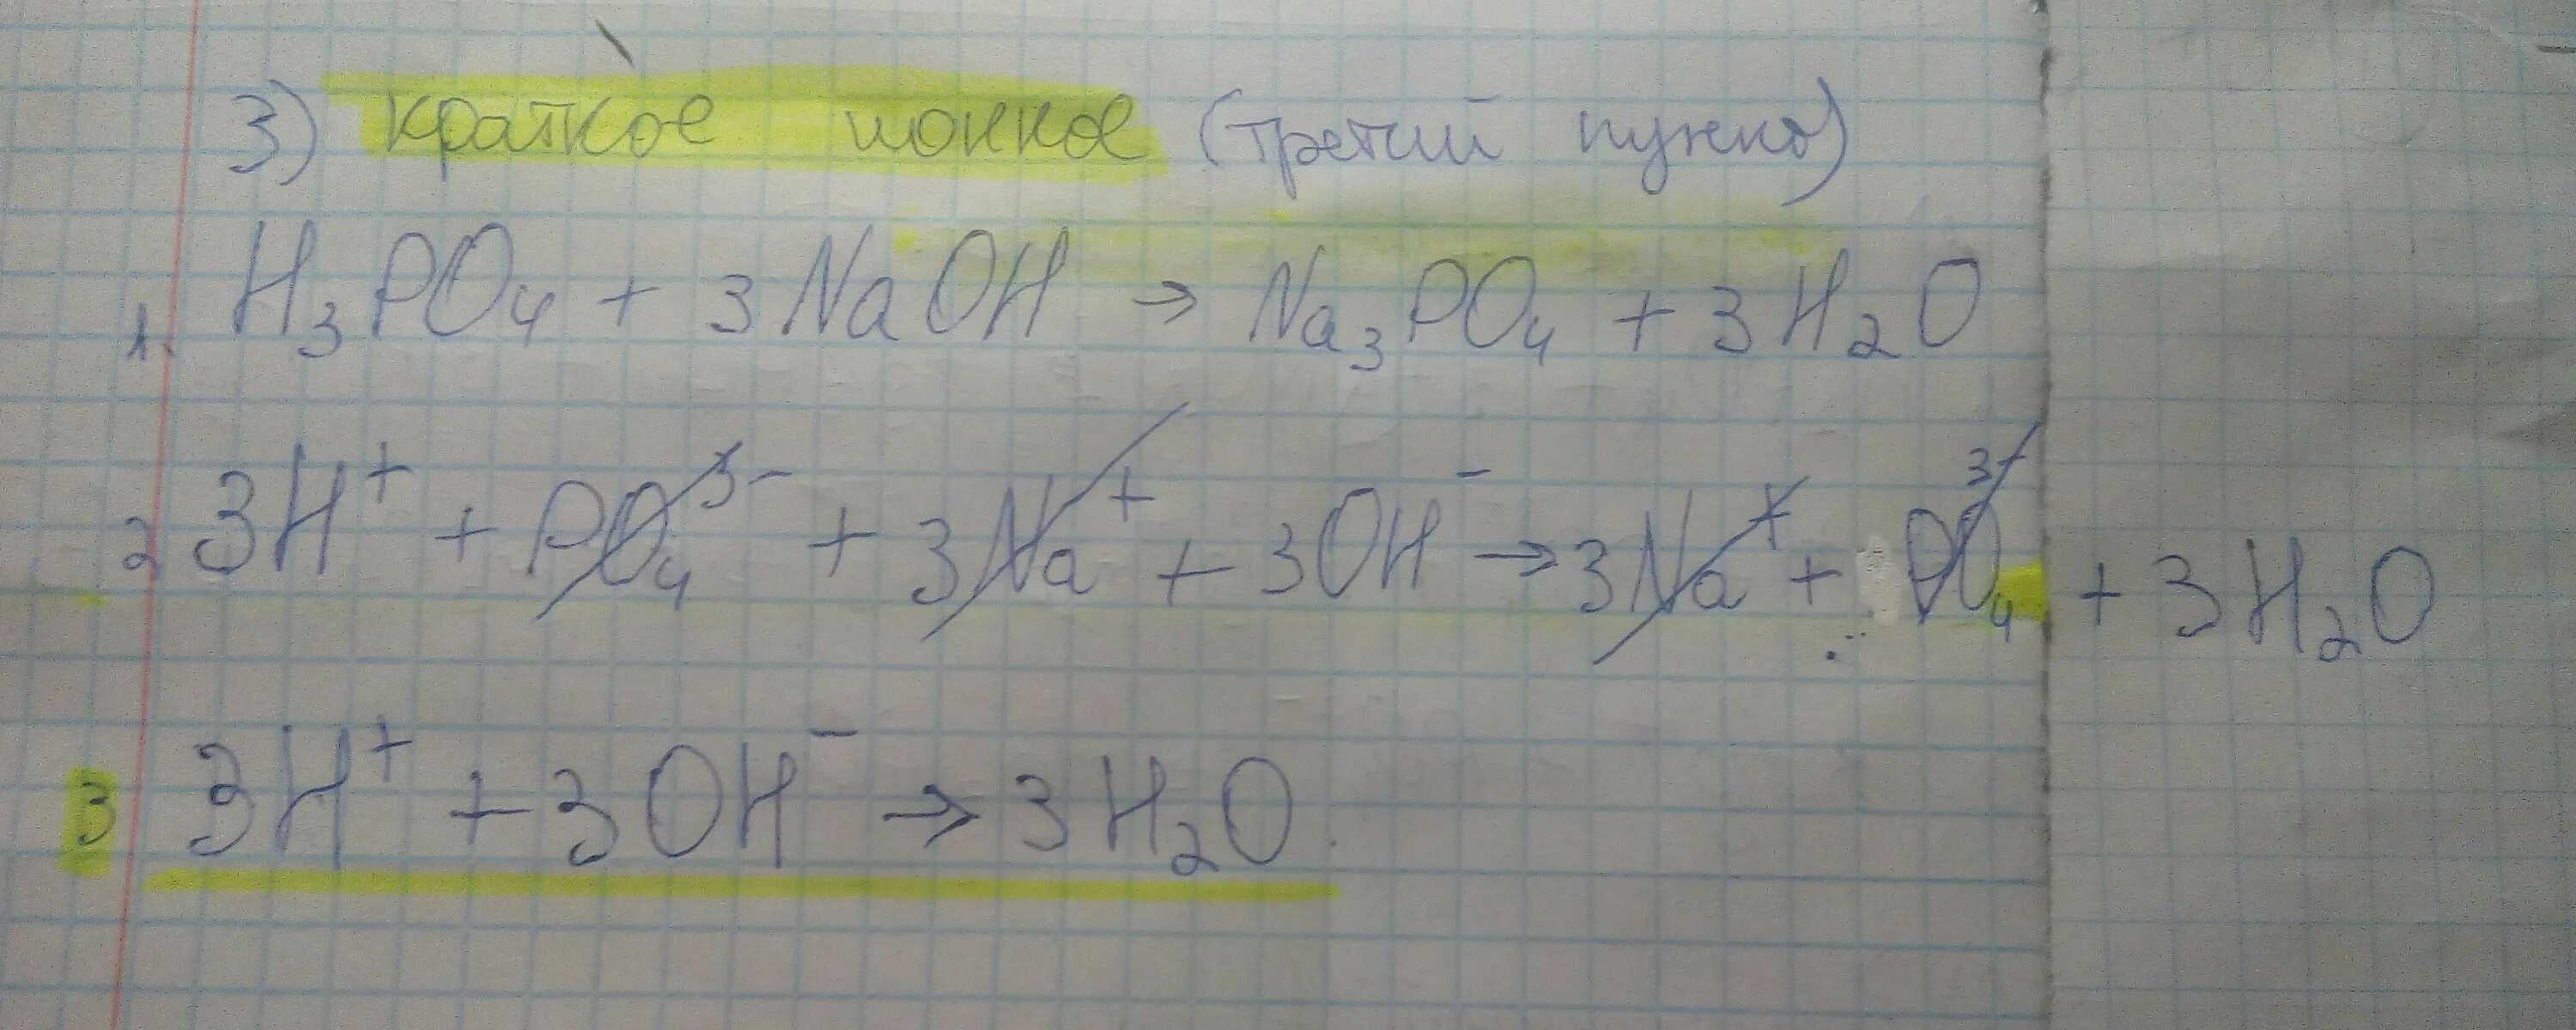 3) краткое ионное (третий нужно)
1. H₃PO₄ + 3NaOH → Na₃PO₄ + 3H₂O
2 3H⁺ + PO₄³⁻ + 3Na⁺ + 3OH⁻ → 3Na⁺ + PO₄³⁻ + 3H₂O
3 3H⁺ + 3OH⁻ → 3H₂O.